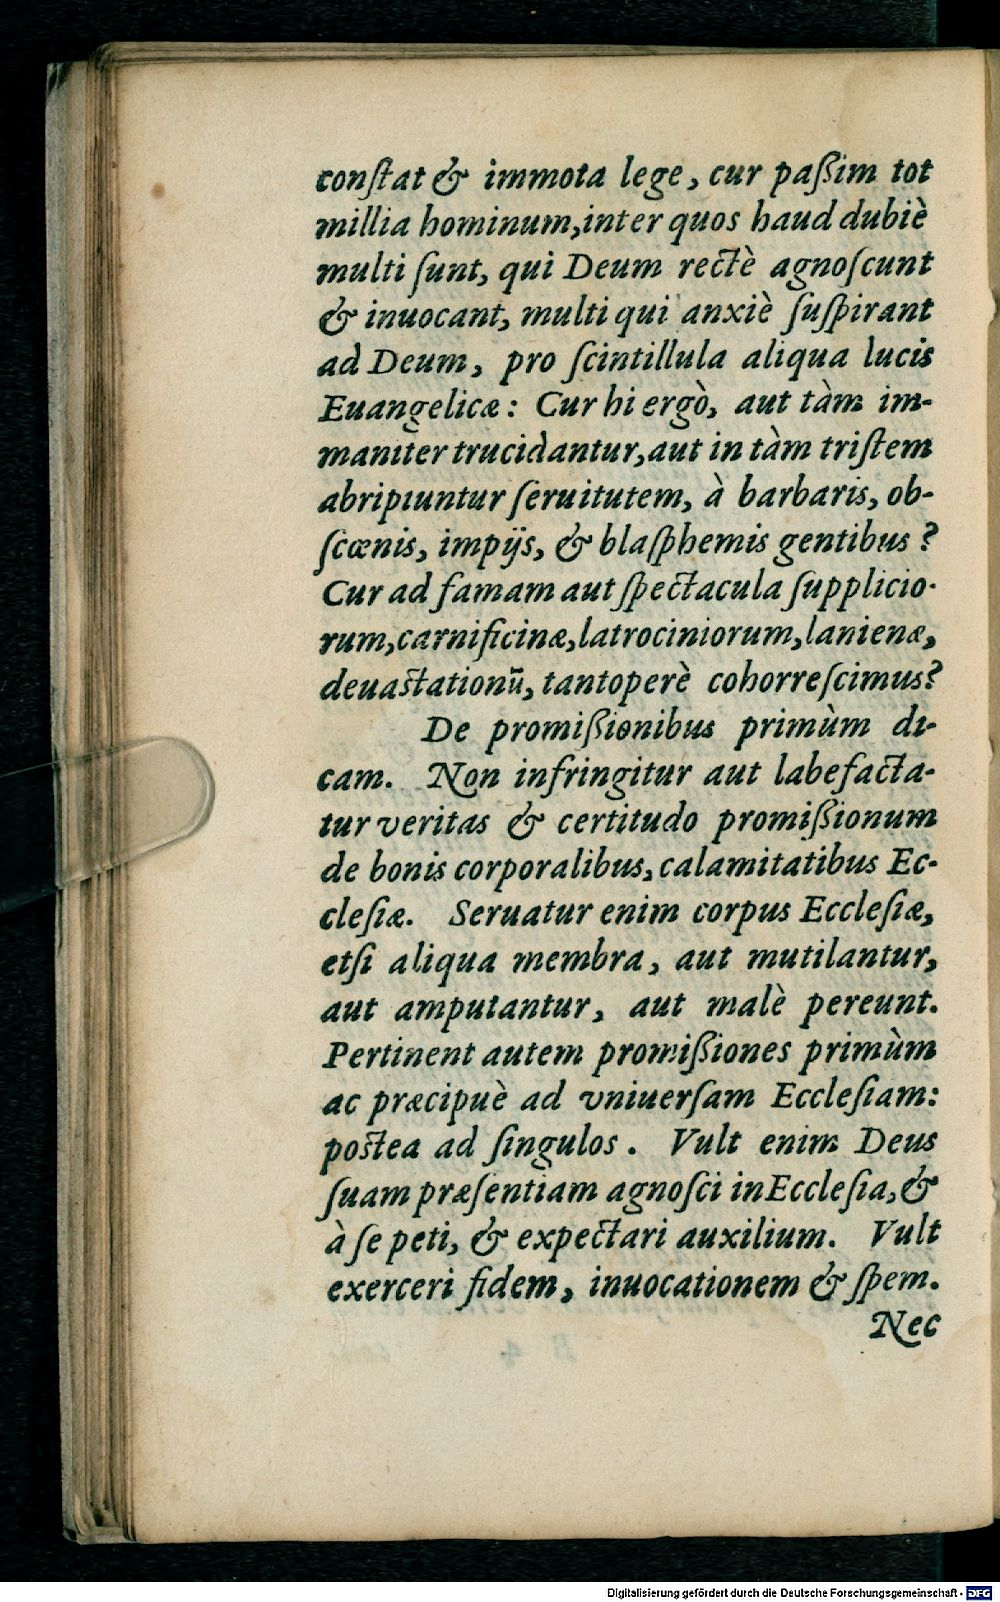 conſtat & immota lege, cur paßim tot
millia hominum, inter quos haud dubiè
multi ſunt, qui Deum rectè agnoſcunt
& inuocant, multi qui anxiè ſuſpirant
ad Deum, pro ſcintillula aliqua lucis
Euangelicæ: Cur hi ergò, aut tàm im-
maniter trucidantur, aut in tàm triſtem
abripiuntur ſeruitutem, à barbaris, ob-
ſcœnis, impijs, & blaſphemis gentibus?
Cur ad famam aut ſpectacula ſupplicio-
rum, carnificinæ, latrociniorum, lanienæ,
deuastationū, tantoperè cohorreſcimus?
De promißionibus primùm di-
cam. Non infringitur aut labefacta-
tur veritas & certitudo promißionum
de bonis corporalibus, calamitatibus Ec-
cleſiæ. Seruatur enim corpus Eccleſiæ,
etſi aliqua membra, aut mutilantur,
aut amputantur, aut malè pereunt.
Pertinent autem promißiones primùm
ac præcipuè ad vniuerſam Eccleſiam:
postea ad ſingulos. Vult enim Deus
ſuam præſentiam agnoſci in Eccleſia, &
à ſe peti, & expectari auxilium. Vult
exerceri fidem, inuocationem & ſpem.
Nec
Digitalisierung gefördert durch die Deutsche Forschungsgemeinschaft - DFG